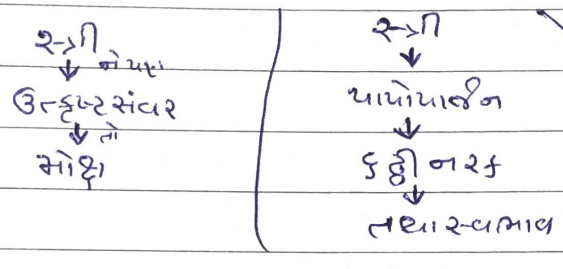 સ્ત્રી
↓ ને પણ
ઉત્કૃષ્ટ સંવર
↓ તો
મોક્ષ
સ્ત્રી
↓
પાપોપાર્જન
↓
૬ઠ્ઠી નરક
↓
તથાસ્વભાવ